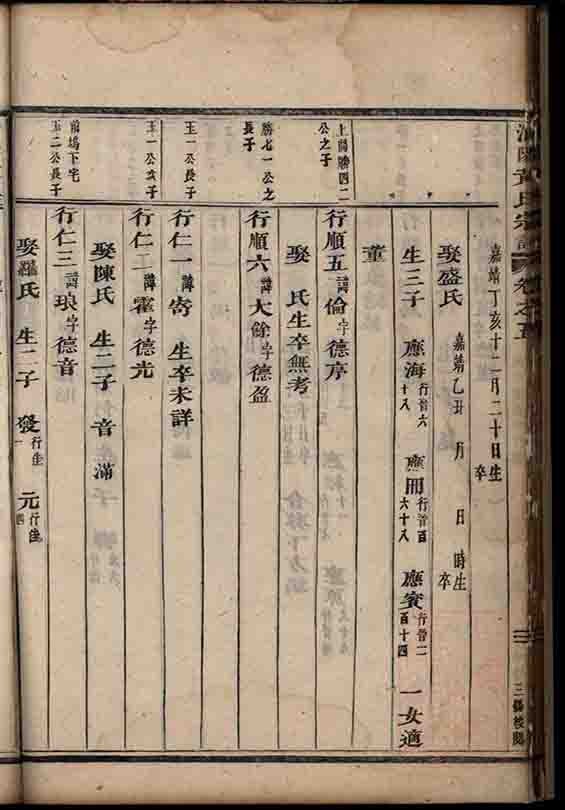 黃氏宗譜 卷之五
三修校閱
嘉靖丁亥十二月二十日生 卒
娶盛氏 嘉靖乙丑 月 日 時生 卒
生三子 應海 行晉六十八 應冊 行晉百六十八 應賓 行晉二百十四 一女適
董
上閣勝四二公之子
行順五 諱倫 字德序
娶 氏生卒無考
勝七一公之長子
行順六 諱大餘 字德盈
玉一公長子
行仁一 諱寄 生卒未詳
玉一公次子
行仁二 諱霍 字德光
娶陳氏 生二子 音 滿
前塢下宅玉二公長子
行仁三 諱琅 字德音
娶羅氏 生二子 發 行 一 元 行 四